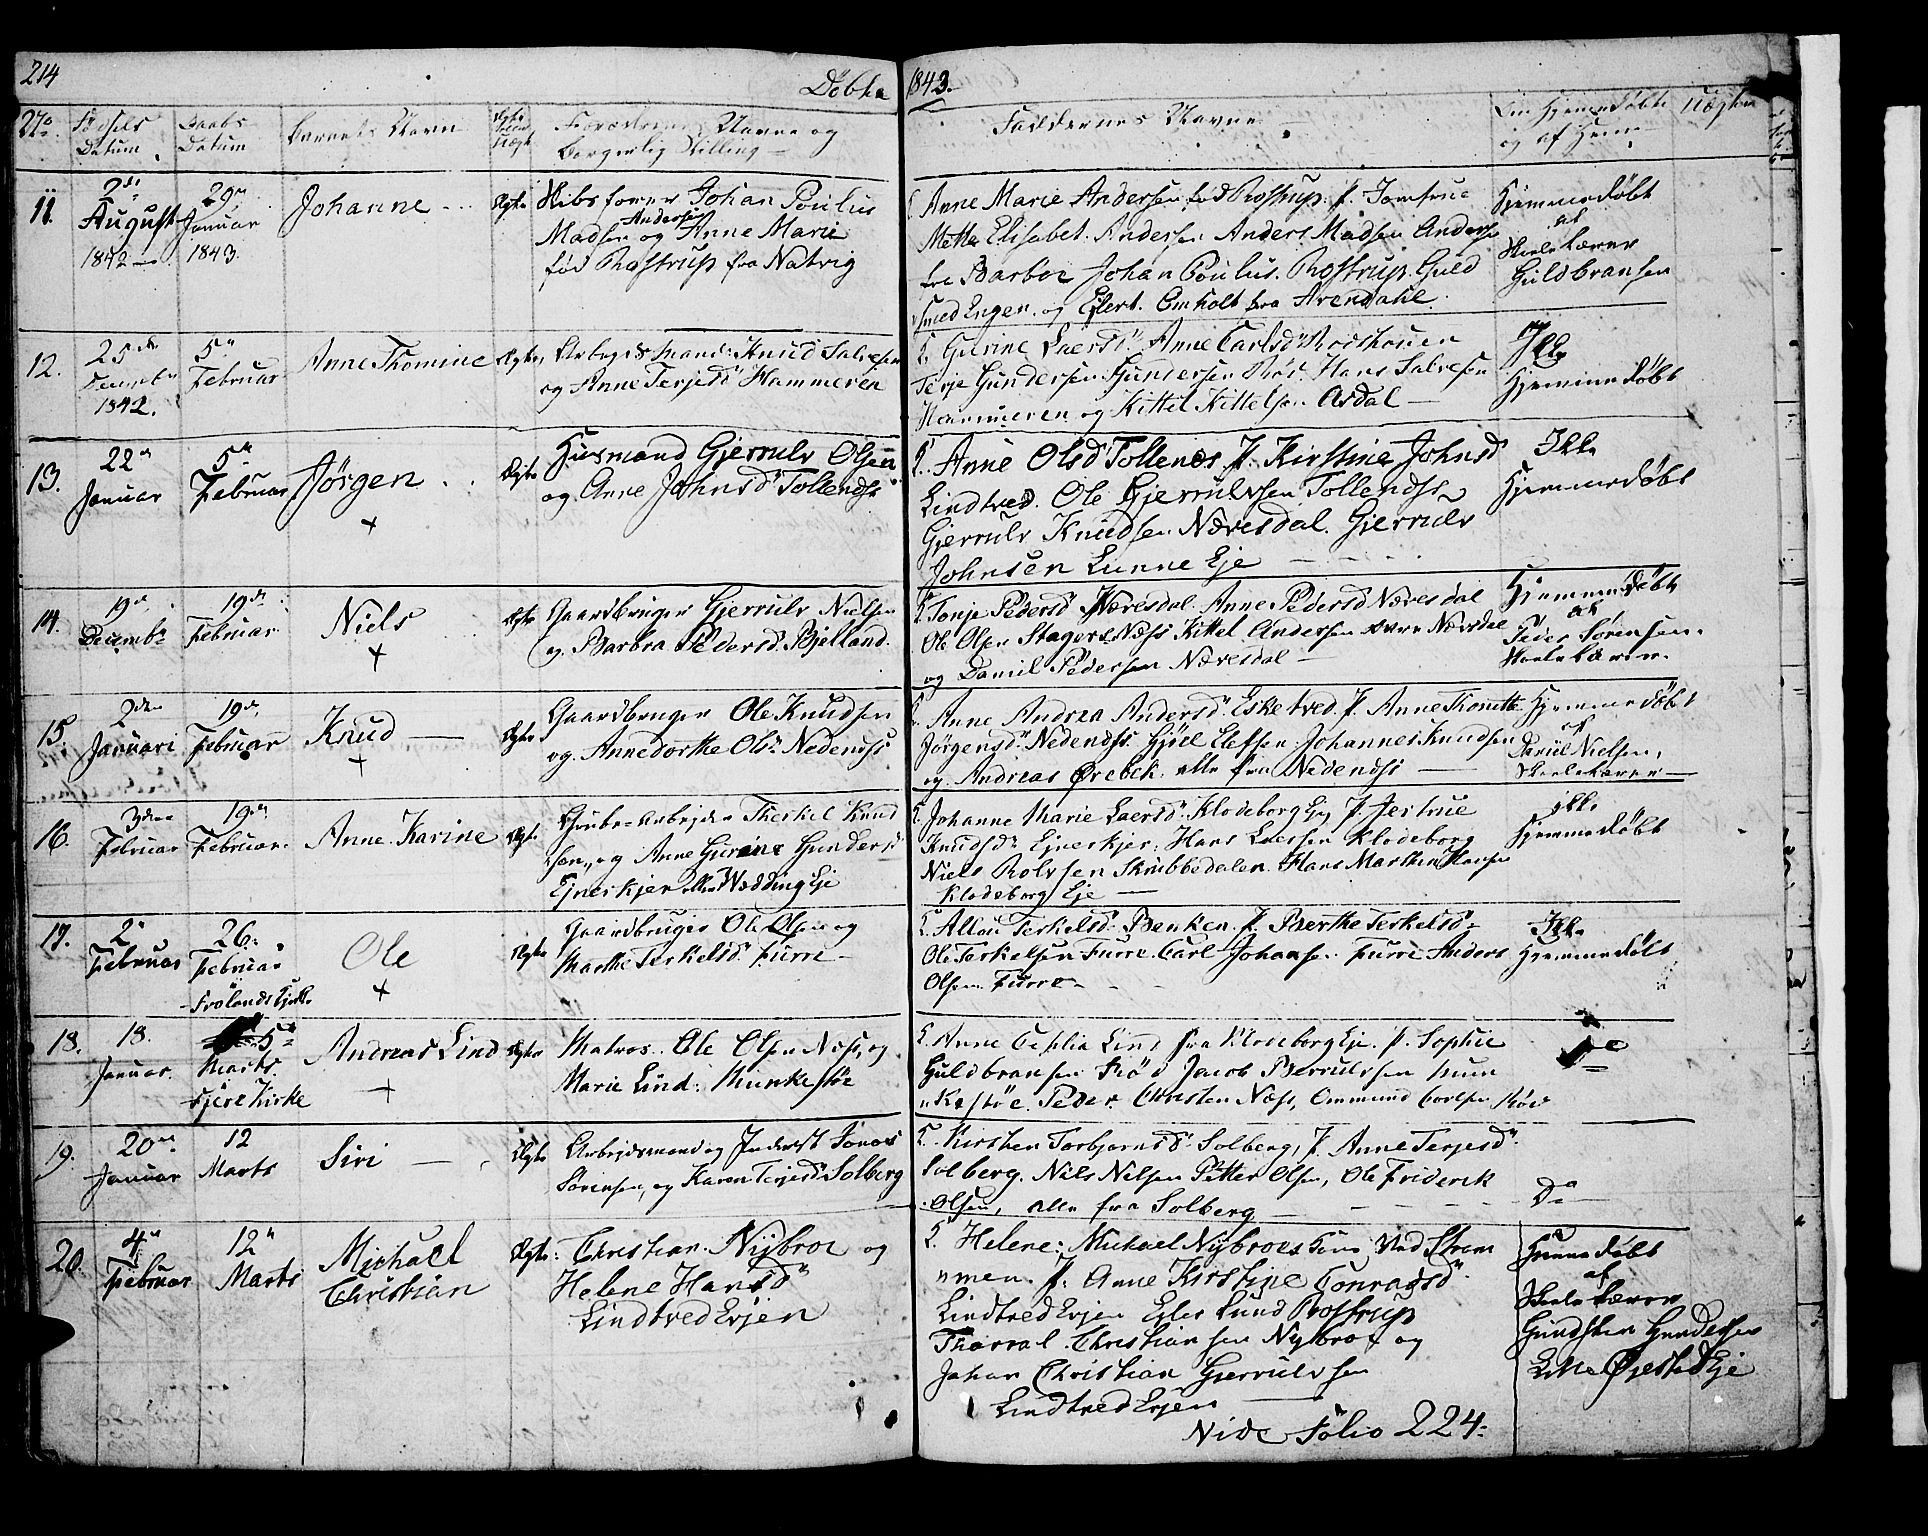 214
Döbte
1843.
No
Fødsels Datum
Daabs Datum
Barnets Navn
Ægte eller Uægte
Forældrenes Navne og Borgerlig Stilling
Faddernes Navne
Om Hjemmedöbt og af Hvem
11.
2de August 1842
29n Januar 1843.
Johanne
Ægte
Skibsfører Johan Poulus
Madsen Andersen og Anne Marie
fød Rostrup fra Natvig
Anne Marie Andersen fød Rostrup. p. Jomfrue
Mette Elisabet Andersen Anders Madsen Andersen
fra Barboe Johan Poulus Rostrup. Guld
smed Engen og Eilert Omholt fra Arendahl.
Hjemmedöbt
af
Skolelærer
Guldbransen
12.
25de Decembr 1842.
5n Februar
Anne Thomine
Ægte
Arbeidsmand: Knud Salvesen
og Anne Terjesd Hammeren
Gurine Laersd Anne Carlsd
Terje Gundersen Gundersen Röd Hans Salvesen
Hammeren og Kittel Kittelsen Asdal
Ikke
Hjemmedöbt
13.
22n Januar
5n Februar
Jørgen
+
Ægte
Husmand Gjerrulv Olsen
og Anne Johnsd Tollendss
Anne Olsd Tollenes p. Kirstine Johnsd
Lindtved. Ole Gjerrulvsen Tollendss
Gjerrulv Knudsen Næresdal Gjerrulv
Johnsen Lunne Eje
Ikke
Hjemmedöbt
14.
19d Decembr
19de Februar
Niels
+
Ægte
Gaardbruger Gjerrulv Nielsen
og Barbra Pedersd Bjelland.
Tonje Pedersd Næresdal. Anne Pedersd Næresdal
Ole Olsen Stagers Næss Kittel Andersen Næresdal
og Daniel Pedersen Næresdal
Hjemmedöbt
af
Peder Sörensen.
Skolelærer.
15
2den Januari
19d Februar
Knud
+
Ægte
Gaardbruger Ole Knudsen
og Anne Dorthe Olsd Nedendss
Anne Andrea Andersd Esketved. p. Anne Thonette
Jörgensd Nedendss. Gjöel Elefsen Johannes Knudsen
og Andreas Ørebek alle fra Nedendss
Hjemmedöbt
af
Daniel Nielsen,
Skolelærer
16.
3den Februar
19d Februar
Anne Karine
Ægte
Grube-arbejder Therkel Knud
sen, og Anne Gurine Gundersd
Ejneskjer Wedding Eje
Johanne Marie Laersd Klodeborg Eje p. Jertrue
Knudsd Ejneskjer, Hans Laersen Klodeborg
Niels Rolvsen Skrubbedalen Hans Marthin Hansen
Klodeborg Eje
ikke
Hjemmedöbt
17.
2n Februar
26. Februar
Frölands Kjerke
Ole
+
Ægte
Gaardbruger Ole Olsen og
Marthe Terkelsd Furre
Terkelsd Benken p. Berthe Terkelsd
Ole Terkelsen Furre. Carl Johansen Furre Anders
Olsen Furre
Ikke
Hjemmedöbt
18.
18. Januar.
5n Marts.
Fjere Kirke
Andreas Lind
+
Ægte
Matros. Ole Olsen Næss, og
Marie Lind: Munkestöe
Anne Cesilia Lind fra Klodeborg Eje. p. Sophie
Guldbransen Röd Jacob Berrulvsen Mun
kestöe Peder Christen Næss, Ommund Carlsen Röd
Do
19.
20n Januar
12 Marts
Siri
Ægte
Arbejdsmand og Inderst Jonas
Sörensen, og Karen Terjesd Solberg
Kirsten Torbjornsd Solberg, p. Anne Terjesd
Solberg. Niels Nielsen Petter Olsen, Ole Friderik
Olsen, alle fra Solberg
Do
20.
4n Februar
12n Marts
Michael
Christian
Ægte
Christian Nybroe og
Helene Hansd
Lindtved Evjen
Helene: Michael Nybroes Kone Ved Strøm
men. p. Anne Kirstine Conradsd
Lindtved Evjen Lund Rostrup
Thorval Christiansen Nybroe og
Johan Christian Gjerrulvsen
Lindtved Evjen
Hjemmedöbt
af
Skolelærer
Gundsten Gundersen
Lille Øjestad Eje
Vide Folio 224.